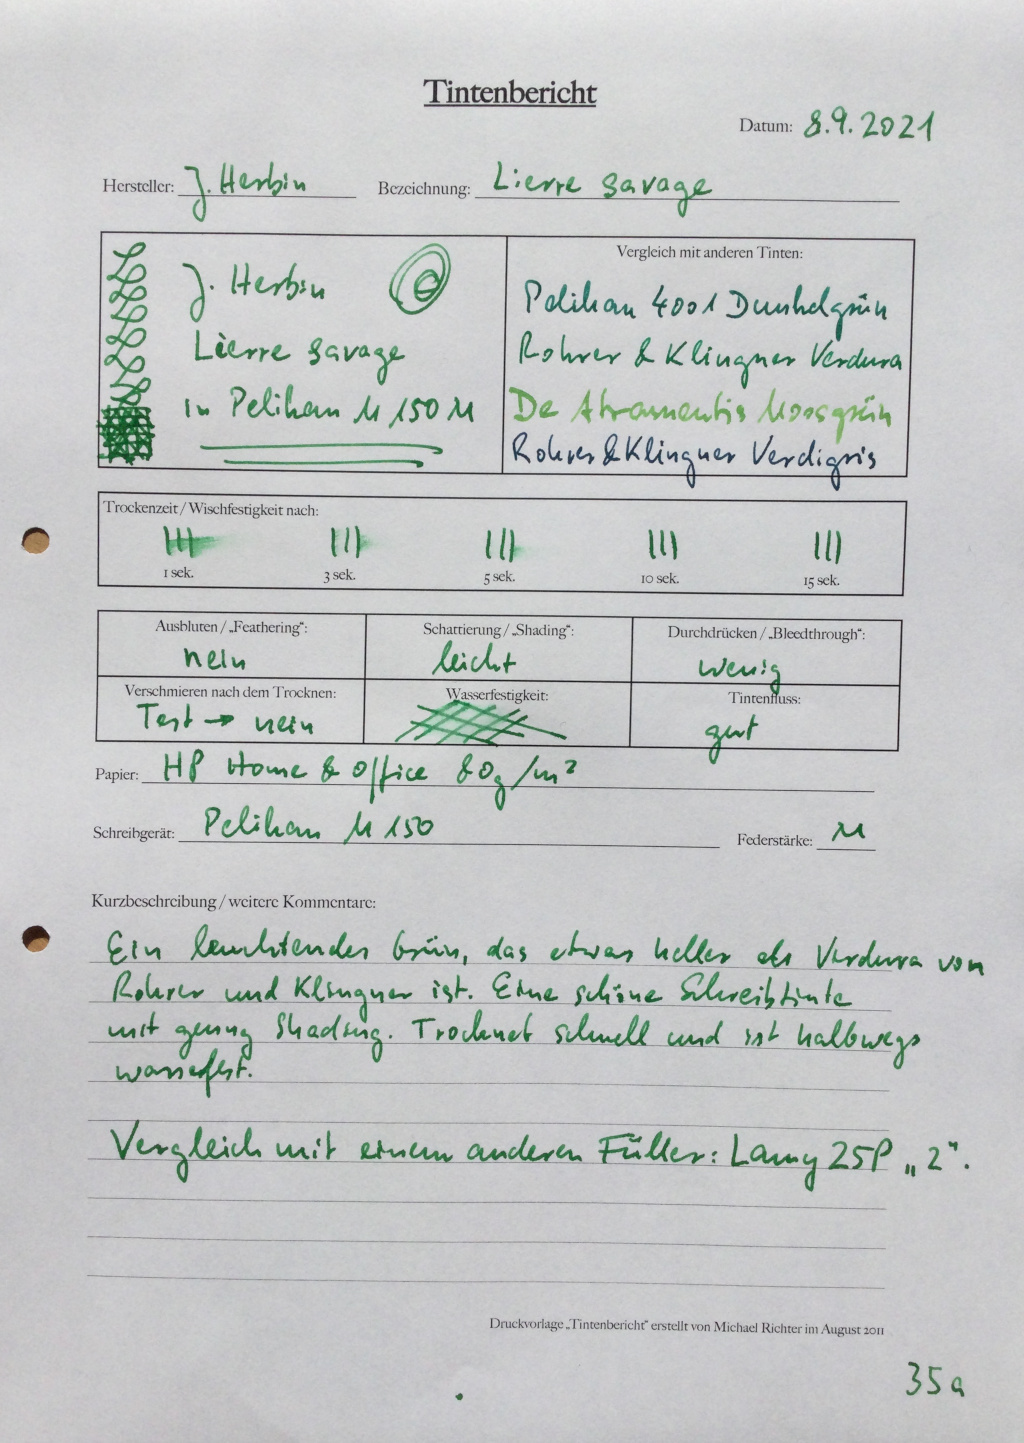 Tintenbericht
Datum: 8.9.2021
Hersteller: J. Herbin Bezeichnung: Lierre savage
J. Herbin
Lierre savage
in Pelikan M 150 M
Vergleich mit anderen Tinten:
Pelikan 4001 Dunkelgrün
Rohrer & Klingner Verdura
De Atramentis Moosgrün
Rohrer & Klingner Verdigris
Trockenzeit / Wischfestigkeit nach:
1 sek. 3 sek. 5 sek. 10 sek. 15 sek.
Ausbluten / „Feathering“: Schattierung / „Shading“: Durchdrücken / „Bleedthrough“:
nein leicht wenig
Verschmieren nach dem Trocknen: Wasserfestigkeit: Tintenfluss:
Test → nein gut
Papier: HP Home & Office 80g/m²
Schreibgerät: Pelikan M 150 Federstärke: M
Kurzbeschreibung / weitere Kommentare:
Ein leuchtendes Grün, das etwas heller als Verdura von
Rohrer und Klingner ist. Eine schöne Schreibtinte
mit genug Shading. Trocknet schnell und ist halbwegs
wasserfest.
Vergleich mit einem anderen Füller: Lamy 25P „2“.
Druckvorlage „Tintenbericht“ erstellt von Michael Richter im August 2011
35a